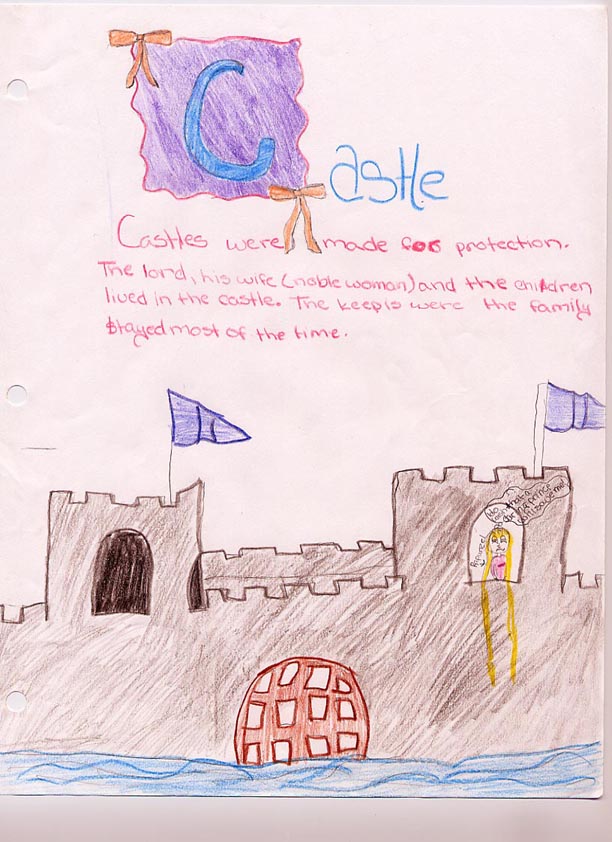 Castle
Castles were made for protection.
The lord, his wife (noble woman) and the children
lived in the castle. The keep is were the family
stayed most of the time.
prince